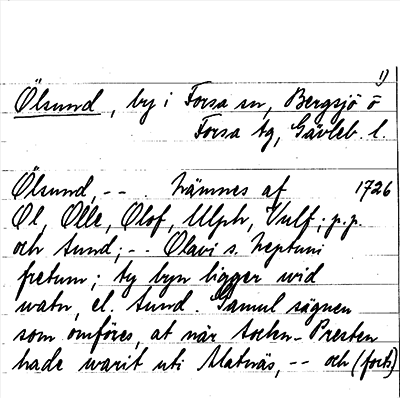 1)
Ölsund, by i Forsa sn, Bergsjö o
Forsa tg, Gävleb. l.
Ölsund, -- . Nämnes af 1726
Øl, Olle, Olof, Ulph, Vulf; p.p.
och sund; -- Olavi s. Neptuni
fretum; ty byn ligger wid
watn, el. sund. Gamul sägnen
som omföres, at när Sochn-Presten
hade warit uti Matnäs, -- och (forts)